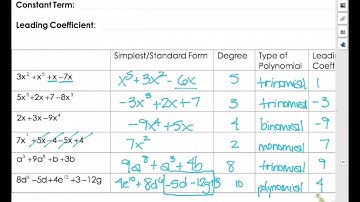 Constant Term:
Leading Coefficient:
Simplest/Standard Form Degree Type of Polynomial Leadi Coeff
3x² + x⁵ + x - 7x x⁵ + 3x² - 6x 5 trinomial 1
5x³+2x+7-8x³ -3x³ + 2x + 7 3 trinomial -3
2x+3x-9x⁴ -9x⁴ + 5x 4 binomial -9
7x² +5x-4-5x+4 7x² 2 monomial 7
a³ +9a⁸ +b+3b 9a⁸ + a³ + 4b 8 trinomial 9
8d⁶ -5d+4e¹⁰ +3-12g 4e¹⁰ + 8d⁶ -5d -12g +3 10 polynomial 4